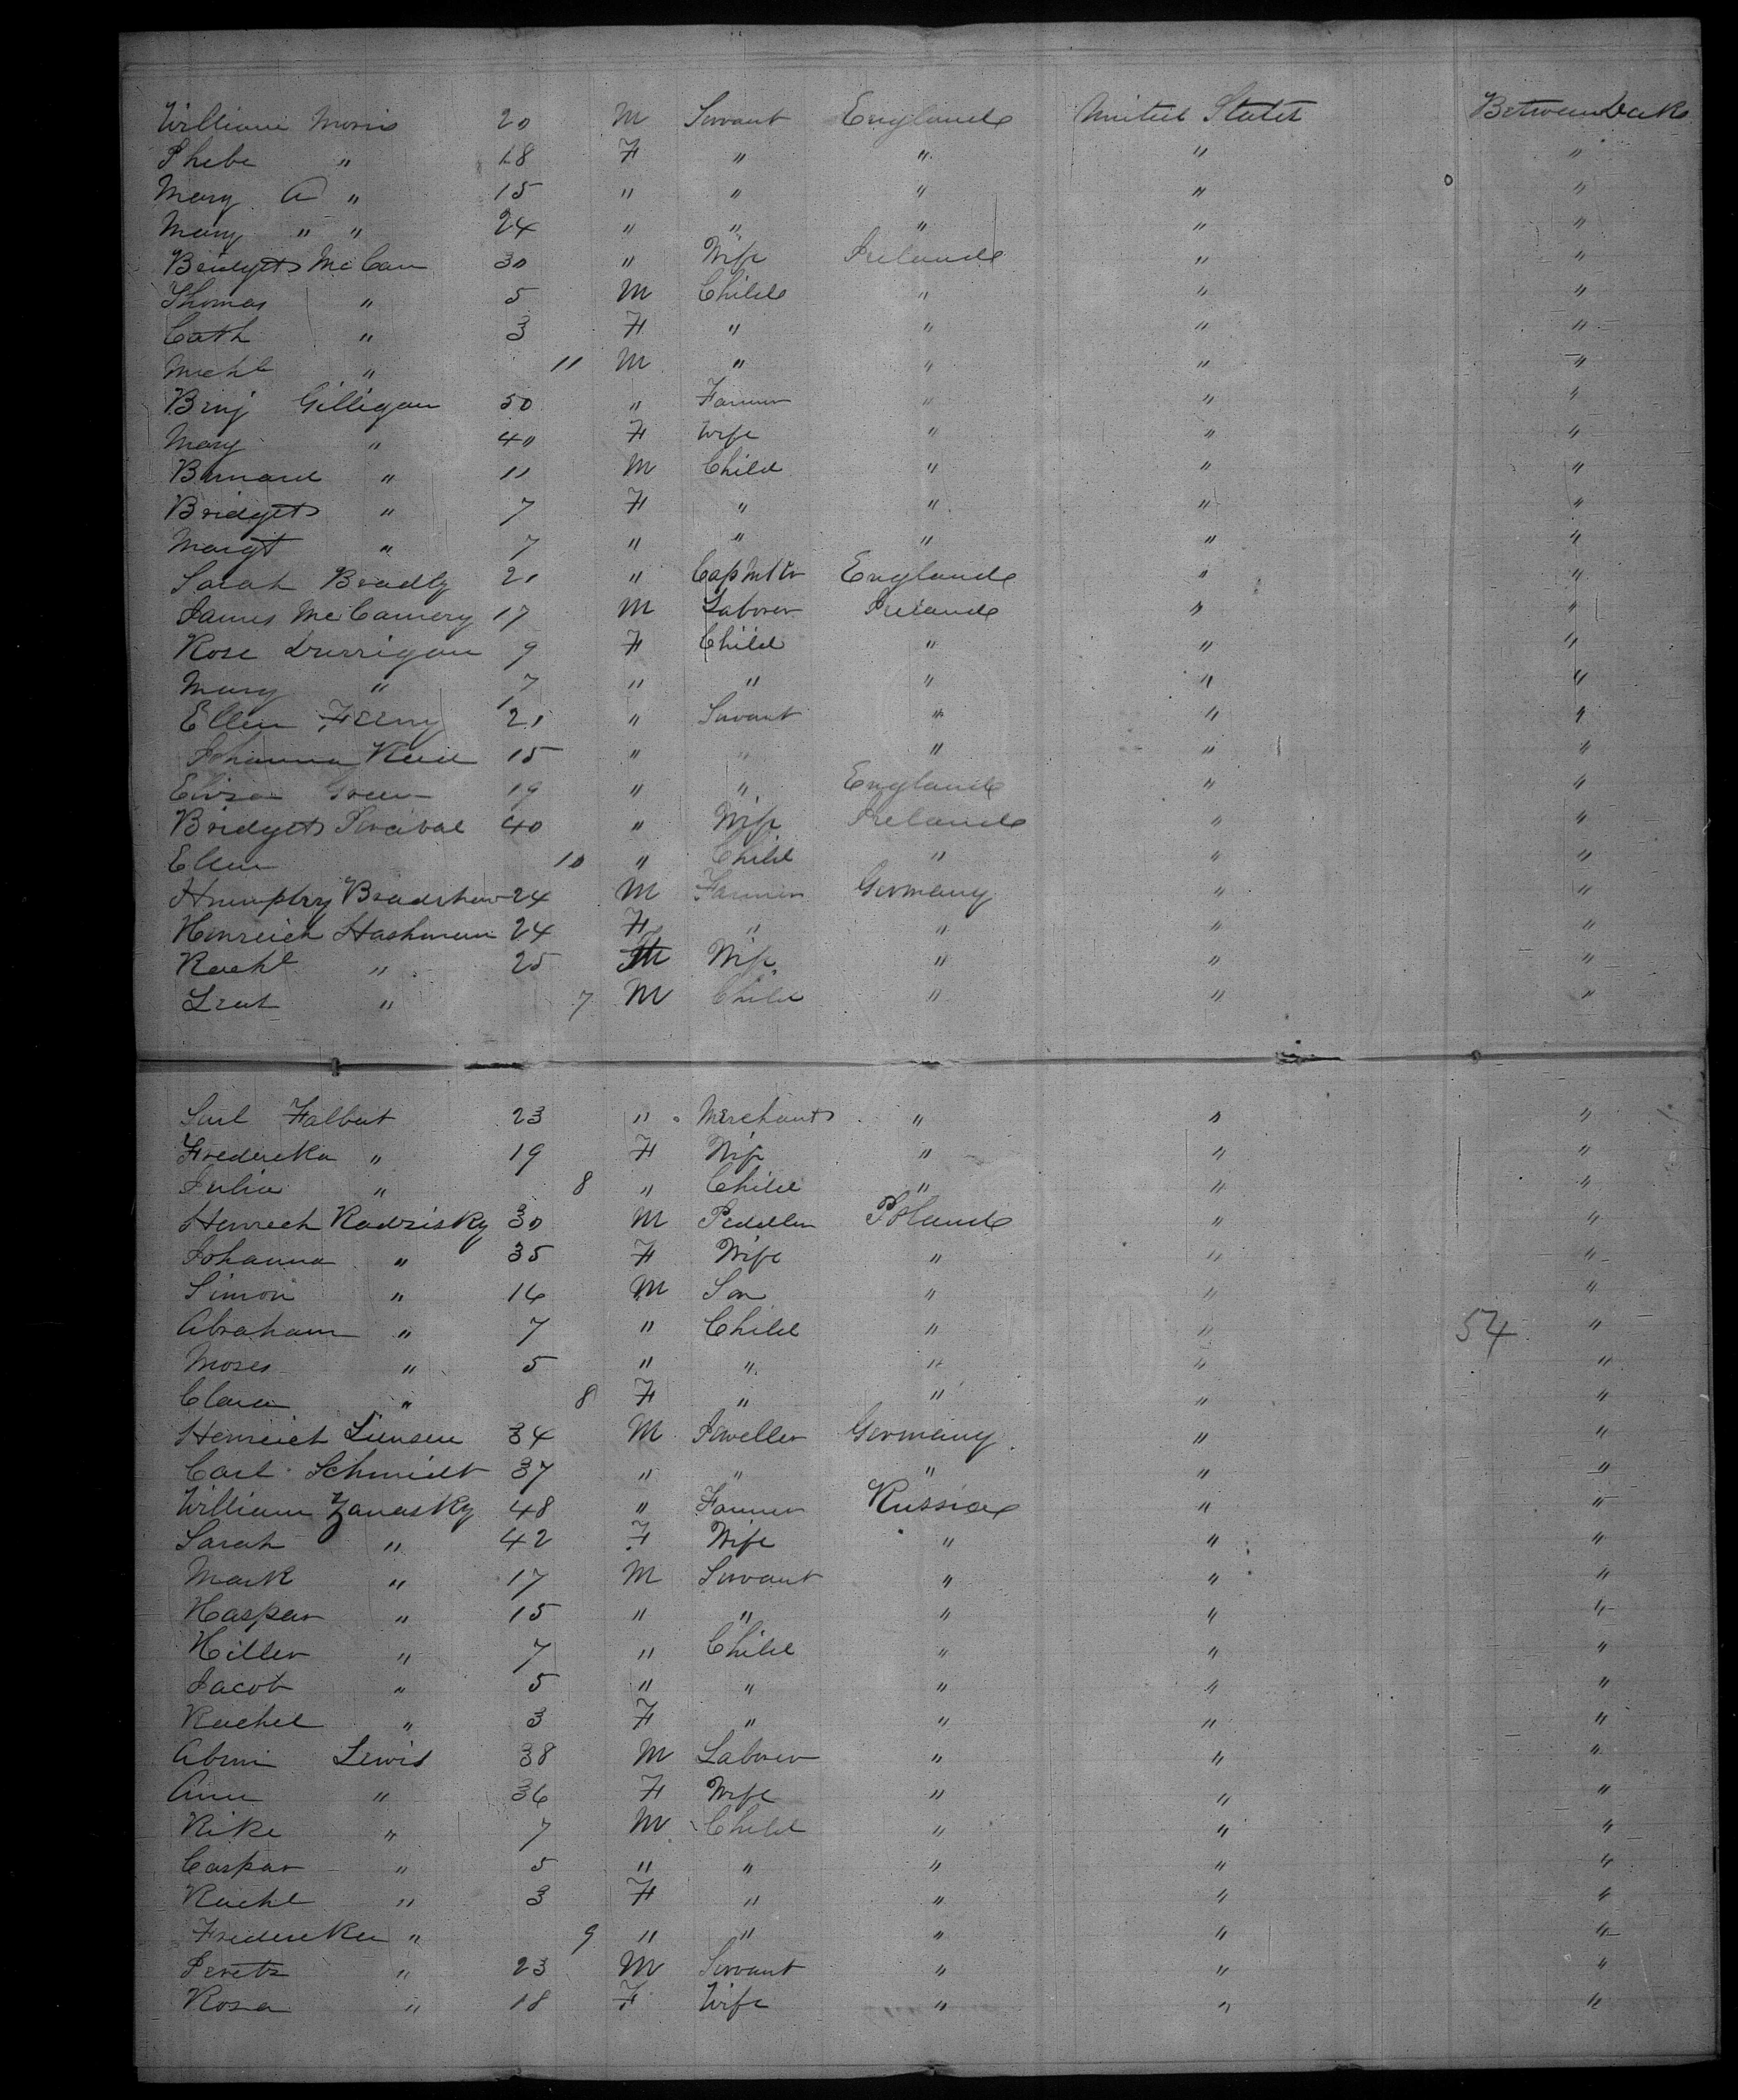 William Morris 20 M Servant England United States Between Decks
Phebe " 18 F " " " "
Mary A " 15 " " " " "
Mary " " 24 " " " " "
Bridget McCan 30 " Wife Ireland " "
Thomas " 5 M Child " " "
Cath " 3 F " " " "
Michl " 11 M " " " "
Benj Gilligan 50 " Farmer " " "
Mary " 40 F Wife " " "
Bernard " 11 M Child " " "
Bridget " 7 F " " " "
Margt " 7 " " " " "
Sarah Bradly 21 " England " "
James McCamery 17 M Laborer Ireland " "
Rose Durrigan 9 F Child " " "
Mary " 7 " " " " "
Ellen 21 " Servant " " "
Johanna 15 " " " " "
Eliza Green 19 " " England " "
Bridget Percival 40 " Wife Ireland " "
Ellen 10 " Child " " "
Humphry Bradshaw 24 M Farmer Germany " "
Henreich Hashman 24 F " " " "
Rachl " 25 Wife " " "
" 7 M Child " " "
Falbut 23 " Merchant " " "
Fredereka " 19 F Wife " " "
Julia " 8 " Child " " "
Henrech Radzisky 30 M Peddler Poland " "
Johanna " 35 F Wife " " "
Simon " 16 M Son " " "
Abraham " 7 " Child " " 54 "
Moses " 5 " " " " "
Clara " 8 F " " " "
Henreich 34 M Jeweller Germany " "
Carl Schmidt 37 " " " " "
William Zanasky 48 " Farmer Russia " "
Sarah " 42 F Wife " " "
Mark " 17 M Servant " " "
Kaspar " 15 " " " " "
Hiller " 7 " Child " " "
Jacob " 5 " " " " "
Rachel " 3 F " " " "
Abrm Lewis 38 M Laborer " " "
Ann " 36 F Wife " " "
Rike " 7 M Child " " "
Caspar " 5 " " " " "
Rachl " 3 F " " " "
Fredereka " 9 " " " " "
Peretz " 23 M Servant " " "
Rosa " 18 F Wife " " "